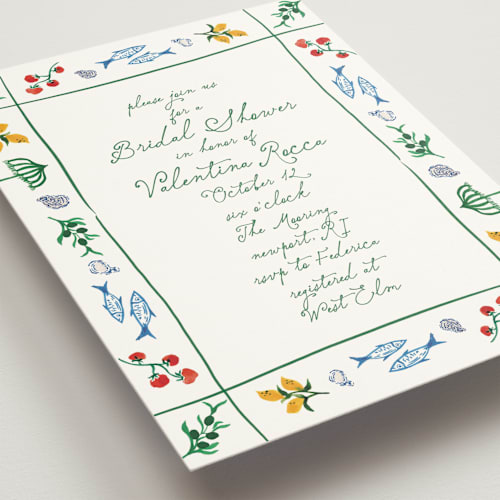 please join us
for a
Bridal Shower
in honor of
Valentina Rocca
October 12
six o'clock
The Mooring
newport, RI
rsvp to Federica
registered at
West Elm